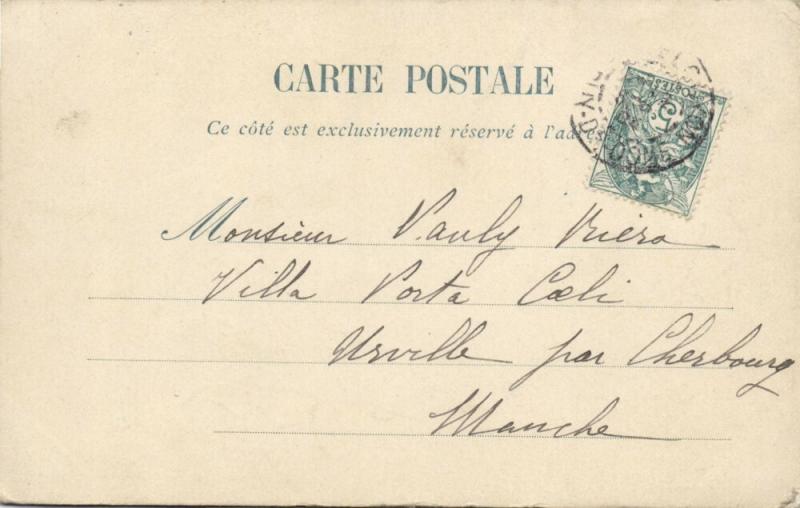 CARTE POSTALE
Ce côté est exclusivement réservé à l'adres
POSTES
5
Monsieur Pauly Riéra
Villa Porta Cœli
Urville par Cherbourg
Manche